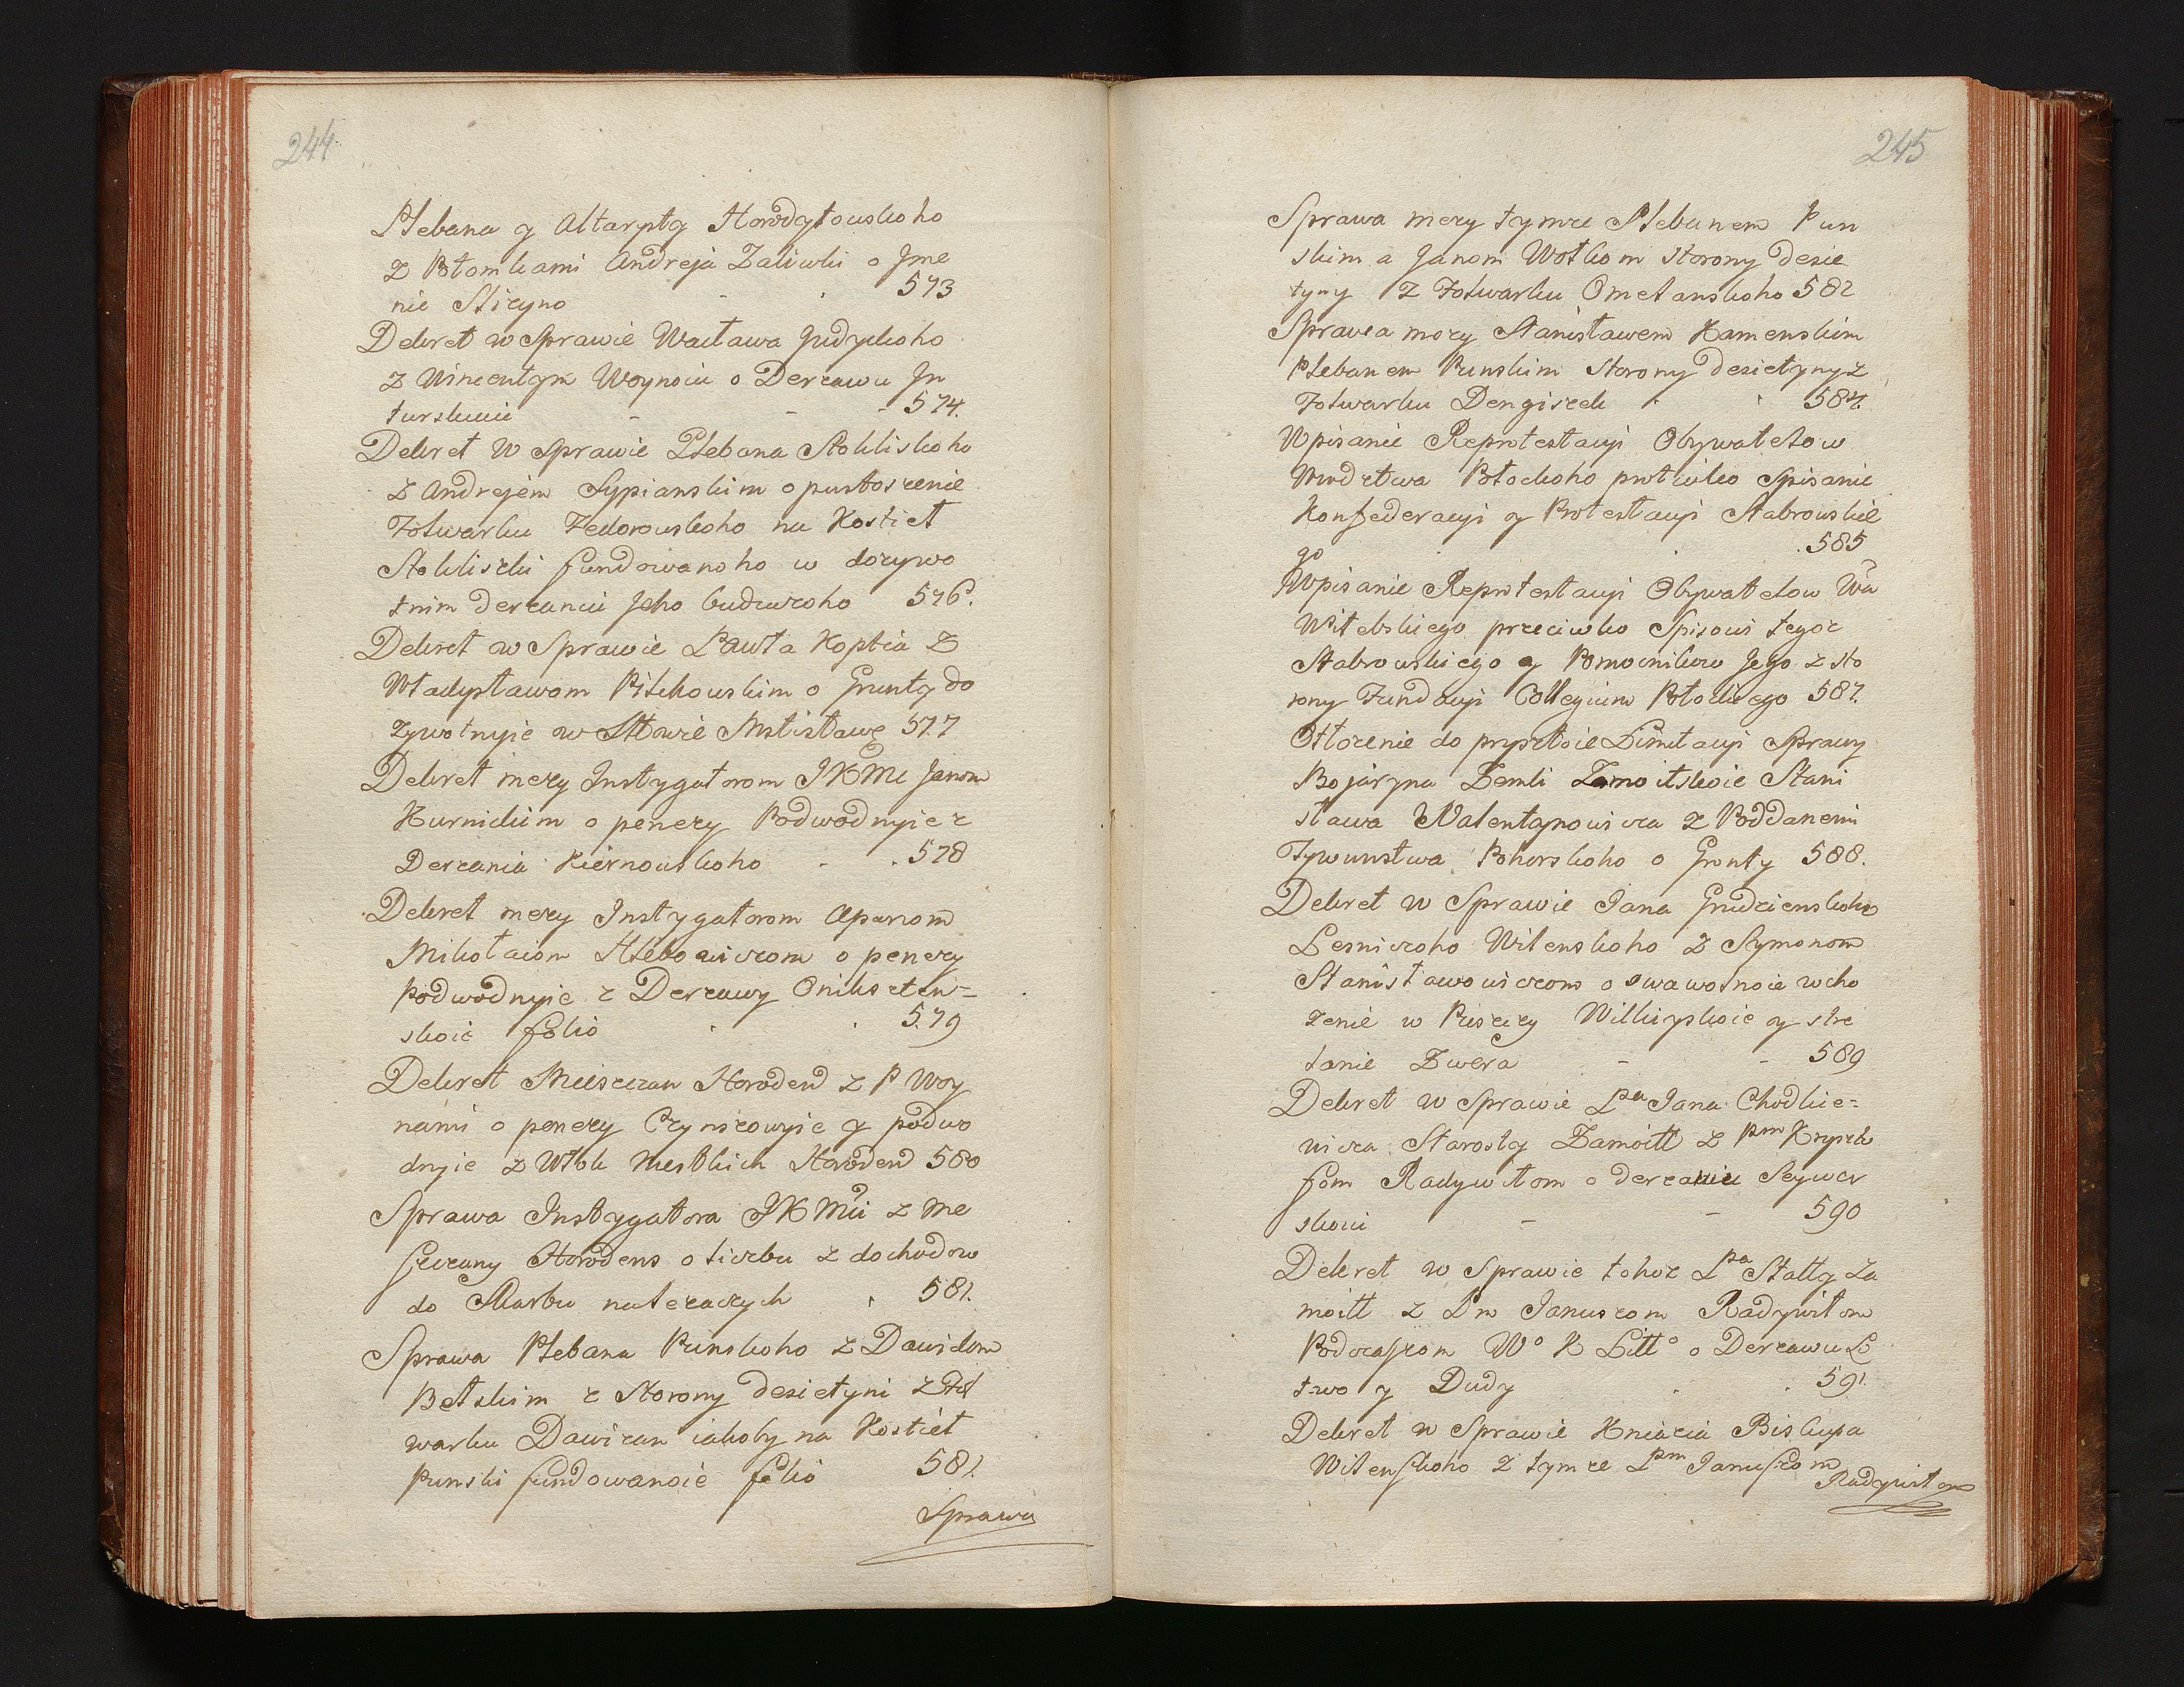 244.
Plebana y Altarysty Horodyłouskoho
z Potomkami Andreja Zaliwki o Jme
nie Stieyno 573
Dekret w Sprawie Wacława Judyckoho
z Wincentym Woynoiu o Derzawu Jn
turskuiu 574.
Dekret w Sprawie Plebana Stokliskoho
z Andrejem Sypianskim o pustoszenie
Folwarku Fedorouskoho na Kościeł
Stokliszki fundowanoho w dozywo
tnim derzaniu Jeho buduczoho 576.
Dekret w Sprawie Pawła Kopcia z
Władysławom Pitkouskim o Grunty do
zywotnyie w Stowie Mstisławe 577
Dekret mezy Instygatorom JKMci Janom
Kurnickim o penezy Podwodnyie z
Derzania Kiernouskoho 578
Dekret mezy Instygatorom a panom
Mikołaiom Hlebowiczom o penezy
podwodnyie z Derzawy Onikszten=
skoie folio 579
Dekret Mieszczan Horoden z P Woy
nami o penezy Czynszowyie y podwo
dnyie z Włok mestkich Horoden 580
Sprawa Instygatora JKMci z Me
szczany Horodens o liczbu z dochodow
do Skarbu nalezaczych 581.
Sprawa Plebana Punskoho z Dawidom
Betskim z Storony desietyni z Fol
warku Dawizan iakoby na Kościeł
Punski fundowanoie folio 581.
Sprawa
245
Sprawa mezy tymze Plebanem Pun
skim a Janom Wołkom storony desie
tyny z Folwarku Ometanskoho 582
Sprawa mezy Stanisławem Kamenskim
Plebanem Punskim storony desietyny z
Folwarku Dengiszek 584.
Wpisanie Reprotestacyi Obywatelow
Wwdztwa Połockoho protiwko Spisanie
Konfederacyi y Protestacyi Stabrowskie
go 585
Wpisanie Reprotestacyi Obywatelow Wa
Witebskiego przeciwko Spisowi tegoz
Stabrouskiego y Pomocnikow Jego z sto
rony Fundacyi Collegium Połockiego 587.
Otłozenie do pryszłoie Limitacyi Sprawy
Bojaryna Zemli Zamoitskoie Stani
sława Walentynowicza z Poddanemi
Tywunstwa Pohorskoho o Grunty 588.
Dekret w Sprawie Jana Grudzienskoho
Lesniczoho Wilenskoho z Symonom
Stanisławowiczom o swawolnoie wcho
zenie w Puszczy Wilkiyskoie y stre
lanie Zwera 589
Dekret w Sprawie Pna Jana Chodkie=
wicza Starosty Zamoitt z Pnm Krysztu
fom Radywiłom o derzaniu Seywer
skoui 590
Dekret w Sprawie tohoz Pna Stalty Za
moitt z Pnm Januszom Radywiłom
Podczaszom Wo K Litto o Derzawu Lo
two y Dudy 591.
Dekret w Sprawie Kniazia Biskupa
Wilenskoho z tymze Pnm Januszom
Radywiłom